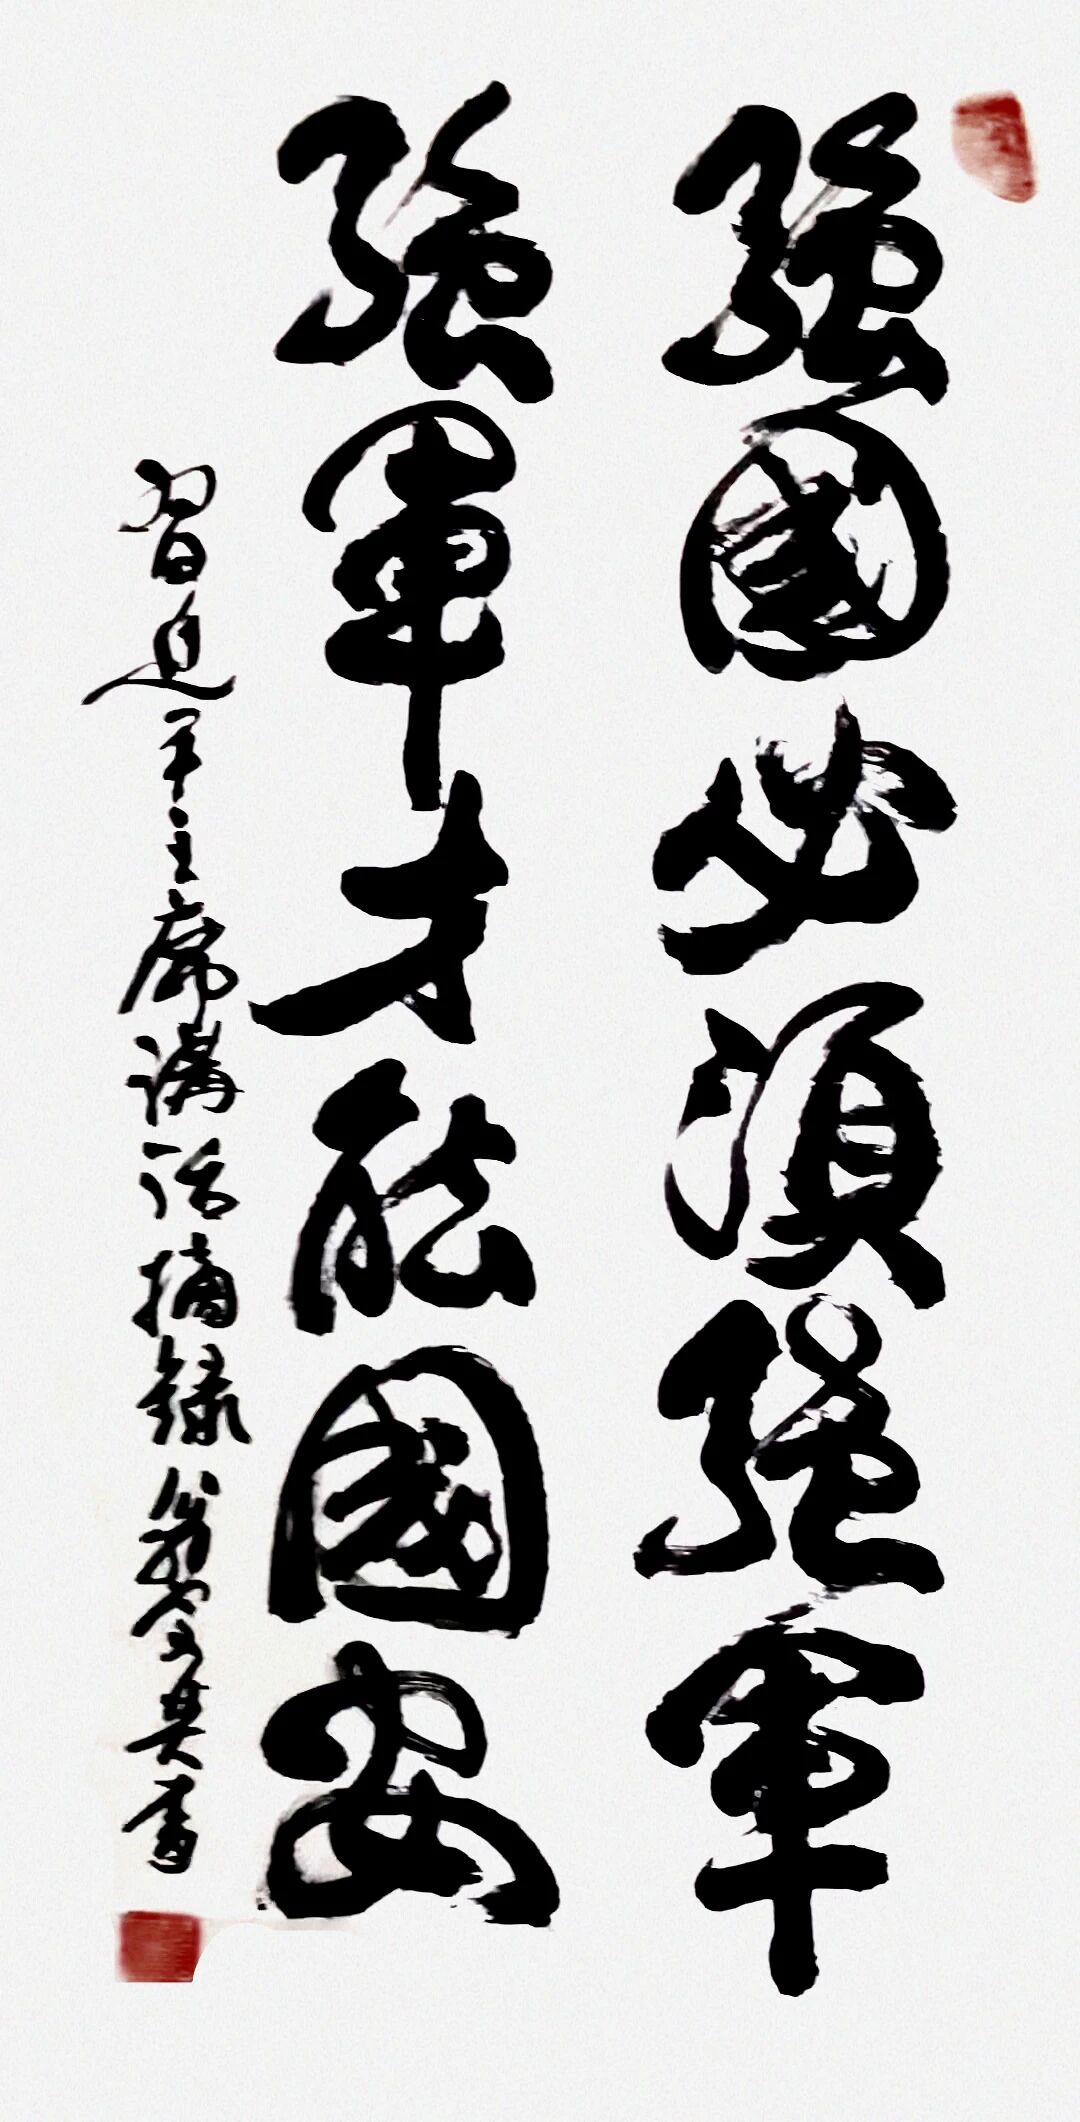 強國必須強軍
強軍才能國安
習近平主席講話摘錄 翁其書